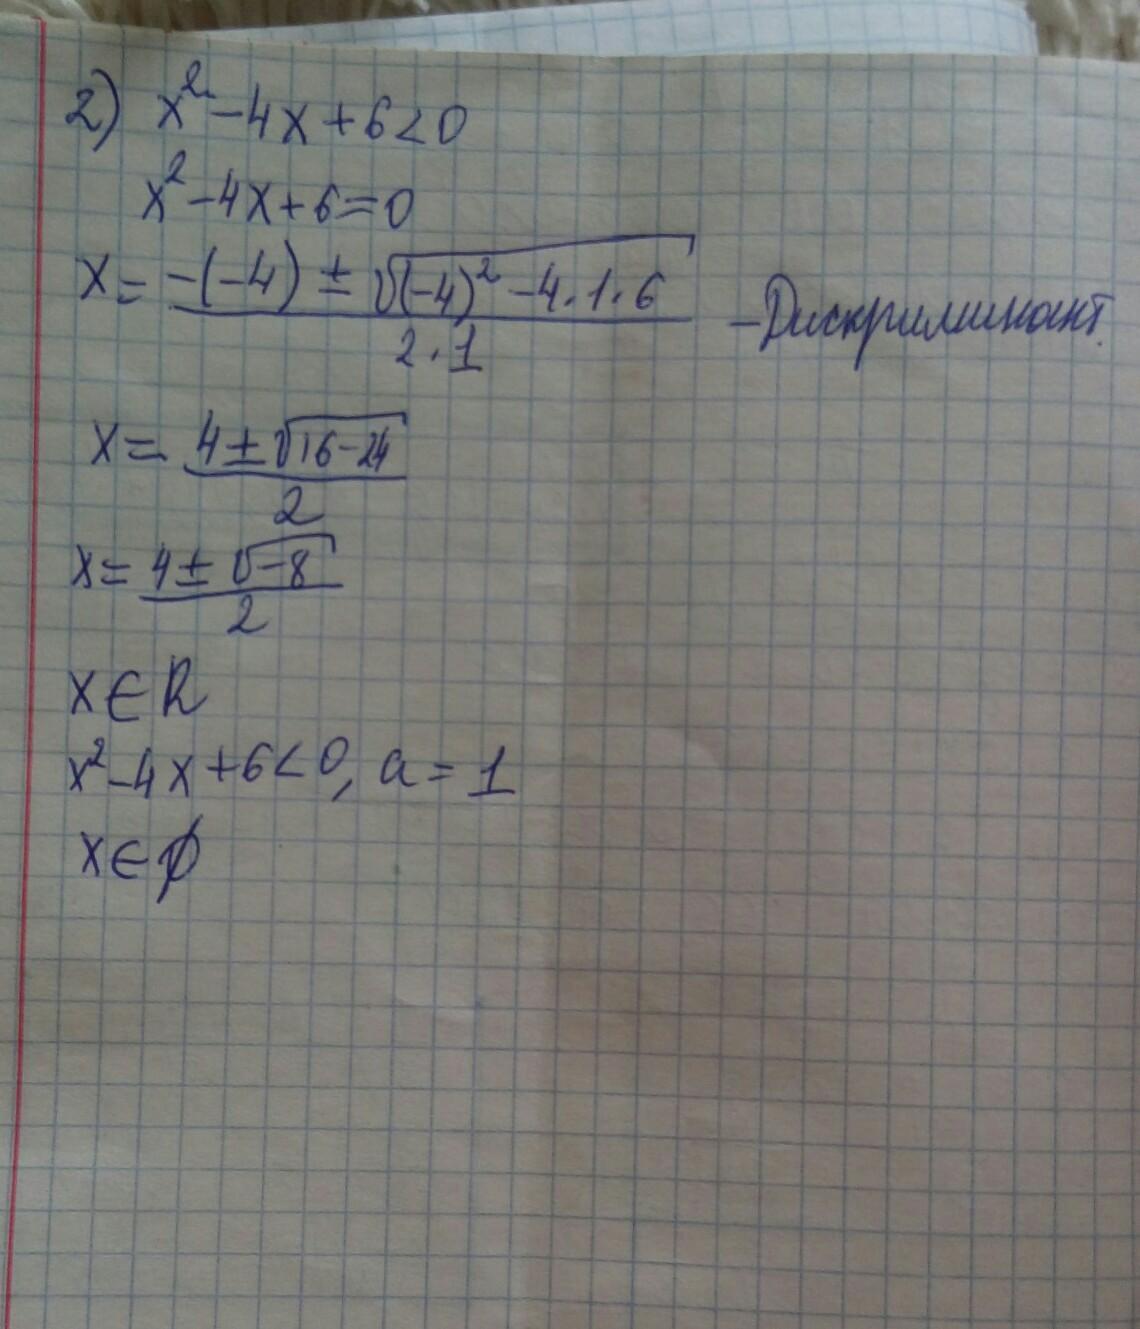 2) x² - 4x + 6 < 0
x² - 4x + 6 = 0
x = (-(-4) ± √((-4)² - 4·1·6)) / (2·1) - Дискриминант.
x = (4 ± √(16 - 24)) / 2
x = (4 ± √(-8)) / 2
x ∈ R
x² - 4x + 6 < 0, a = 1
x ∈ ∅